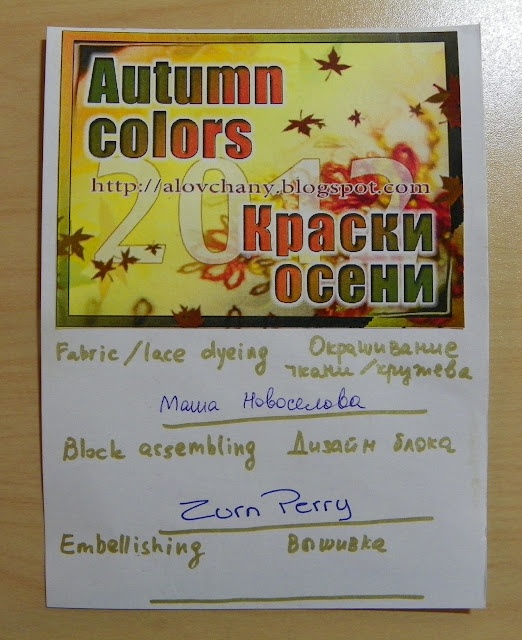 Autumn
colors
2012
http://alovchany.blogspot.com
Краски
осени
Fabric/lace dyeing Окрашивание
ткани/кружева
Маша Новоселова
Block assembling Дизайн блока
Zurn Perry
Embellishing Вышивка